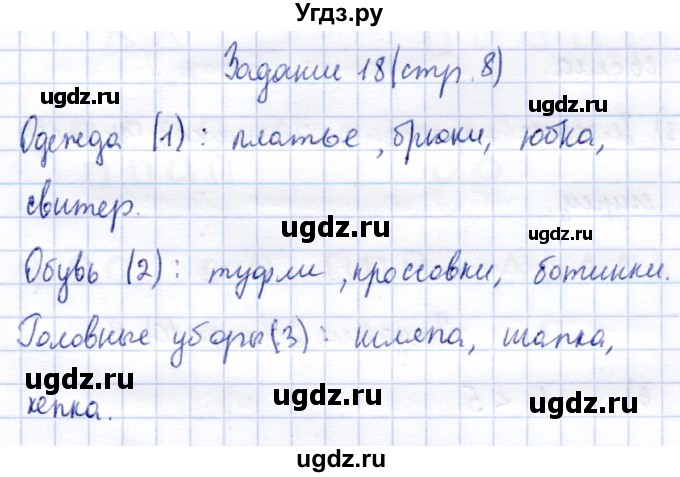 Угдз.ру
Задание 18 (стр. 8)
ugdz.ru ugdz.ru
Одежда (1): платье, брюки, юбка,
свитер.
ugdz.ru ugdz.ru
Обувь (2): туфли, кроссовки, ботинки.
ugdz.ru
Головные уборы (3): шляпа, шапка,
ugdz.ru ugdz.ru ugdz.ru
кепка.
ugdz.ru